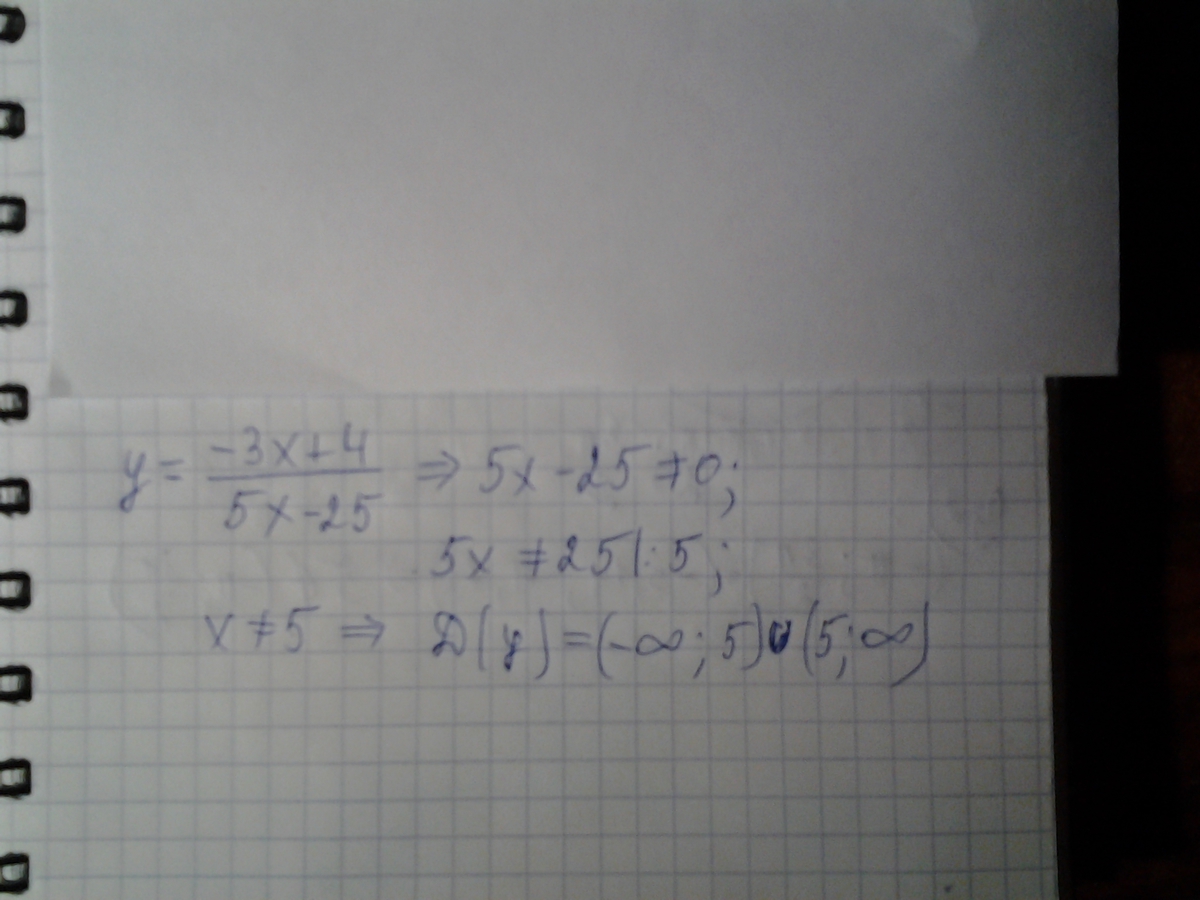 y = \frac{-3x+4}{5x-25} ⇒ 5x - 25 ≠ 0;
5x ≠ 25 |: 5;
x ≠ 5 ⇒ D(y) = (-∞; 5) ∪ (5; ∞)